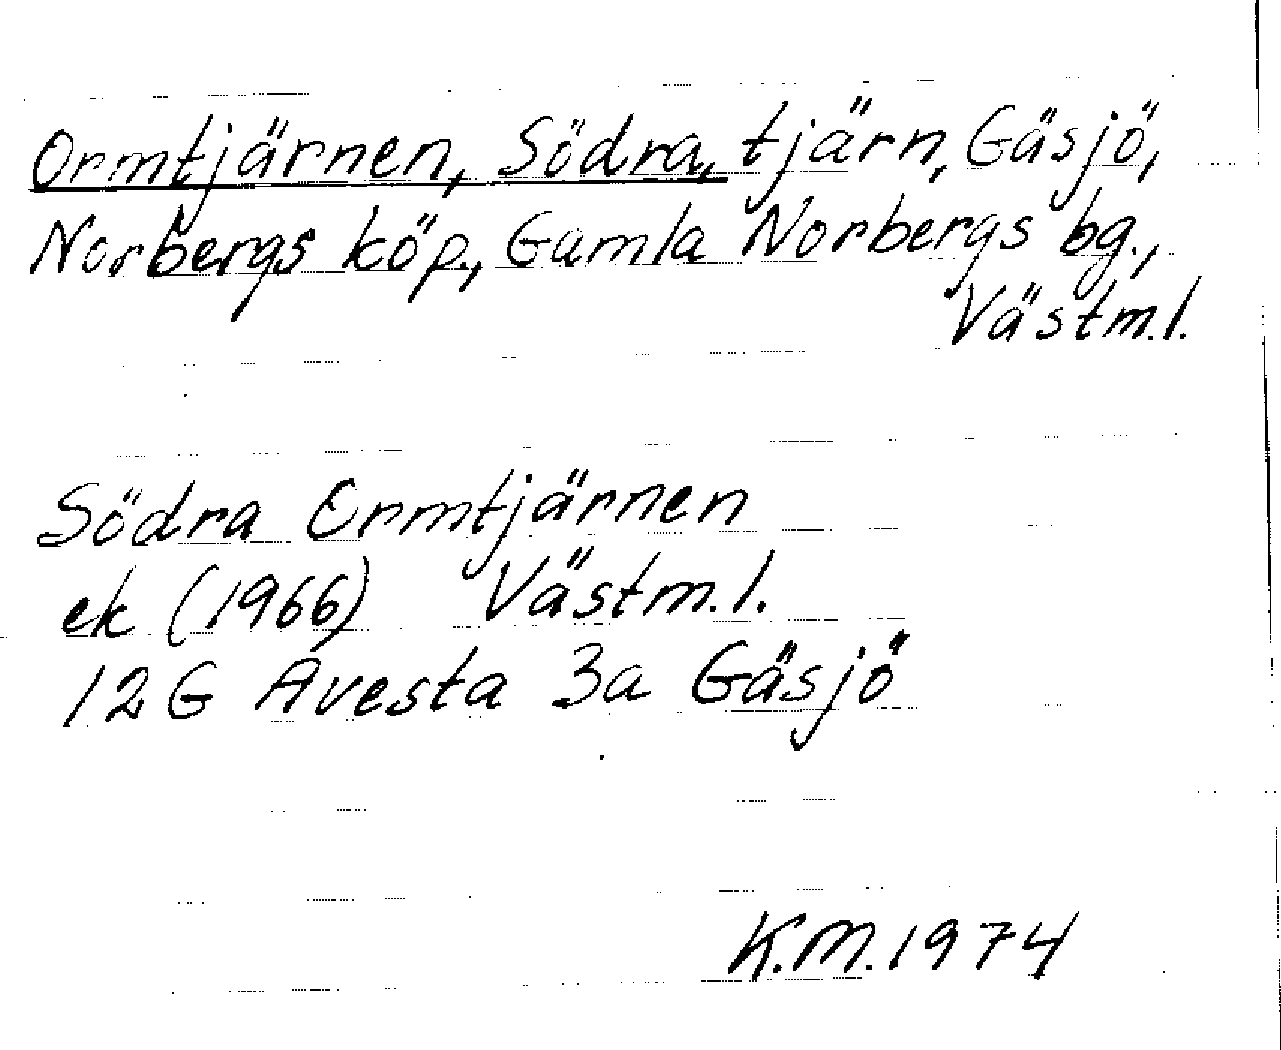 Ormtjärnen, Södra, tjärn, Gäsjö,
Norbergs köp., Gamla Norbergs bg.,
Västm.l.
Södra Ormtjärnen
ek (1966) Västm.l.
12G Avesta 3a Gäsjö
K.M. 1974